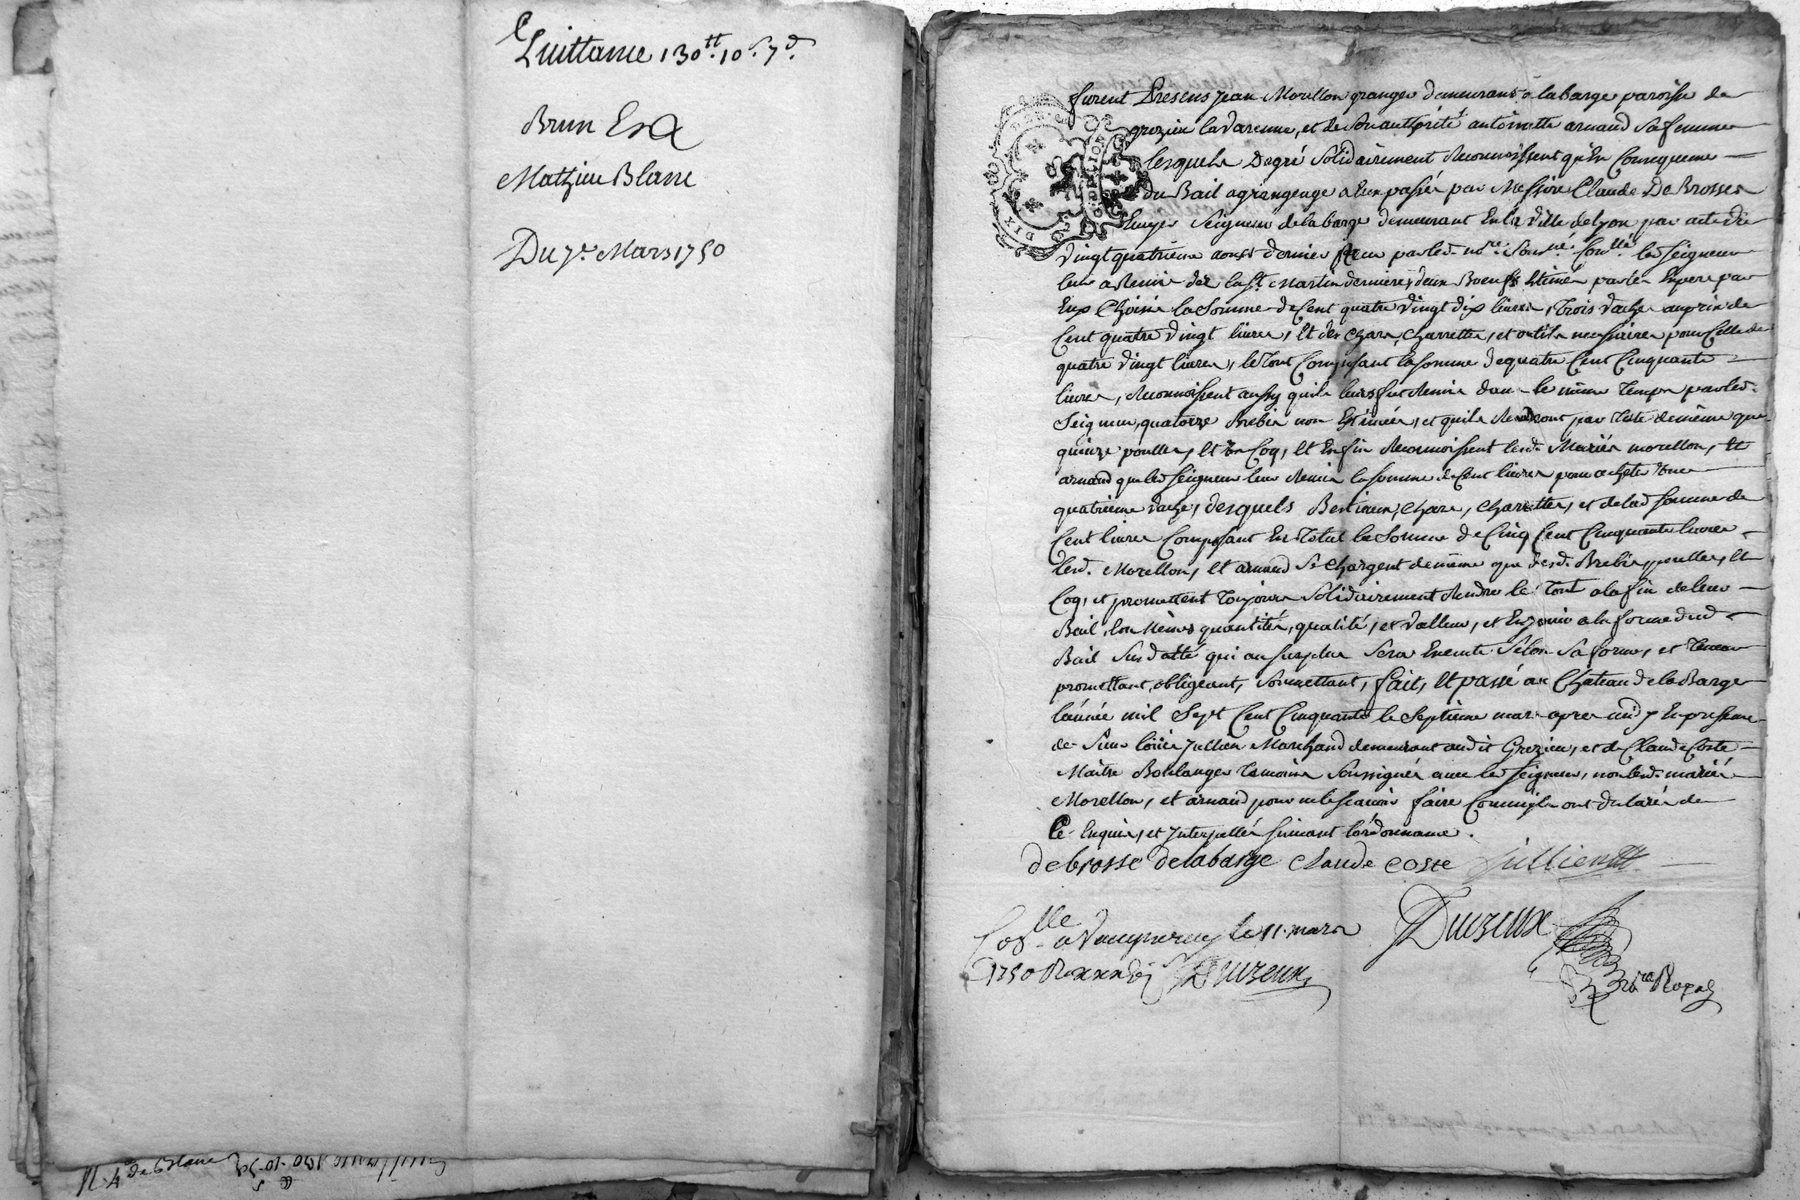 Quittance 130tt. 10s. 7d.
Brun Et a
Mathieu Blanc
Du 7e. Mars 1750
furent Presens Jean Morellon granger demeurant a labarge paroisse de
grezieu lavarenne, et de son authorité antoinette arnaud sa femme
lesquels De gré solidairement Reconnoissent qu'En Consequence
du Bail a grangeage a Eux passée par Messire Claude De Brosses
Ecuyer Seigneur de labarge demeurant En la Ville de lyon par acte du
vingt quatrieme aoust dernier Reçu par led. nore. Sousné. led. seigneur
leur a Remis dez la St. Martin derniere, deux Boeufs Estimés par les Experts par
Eux Choisis la Somme de Cent quatre vingt dix livres, Trois vaches au prix de
Cent quatre vingt livres, Et des Chars, Charrettes, et outils necessaires pour Celle de
quatre vingt livres, le Tout Composant la Somme de quatre Cent Cinquante
livres, Reconnoissent aussy quil leurs fut Remis dans le même Temps par led.
Seigneur, quatorze Brebis non Estimées, et quils Rendront par Teste de même que
quinze poulles, Et Un Coq, Et Enfin Reconnoissent lesd. Mariés morellon, Et
arnaud que led. seigneur leur Remis la somme de Cent livres pour acheter Une
quatrieme vache, desquels Bestiaux, Chars, Charettes, et de lad. somme de
Cent livres Composant En Total la Somme de Cinq Cent Cinquante livres
lesd. Morellon, Et arnaud se Chargent de même que desd. Brebis, poulles, Et
Coq, et promettent Toujours Solidairement Rendre le Tout a la fin de leur
Bail, En mêmes quantités, qualité, et valleur, et En Jouir a la forme dud.
Bail susdatté qui au surplus Sera Executé Selon Sa forme, et Teneur
promettant, obligeant, soumettant, fait, Et passé au Château de la Barge
l'année mil Sept Cent Cinquante le Septieme mars apres midy En presence
de Sieur Jullien Marchand demeurant audit Grezieu, et de Claude Coste
Maître Boulanger Temoins Soussignés avec led. seigneur, non lesd. mariés
Morellon, et arnaud pour ne sçavoir faire Comme ils ont declarés de
Ce Enquis, et Interpellés suivant l'ordonnance.
de brosse de labarge Claude Coste Jullien
Colle a Vaugneray le 11. mars
1750 Duzeux
Duzeux
Nre Royal
N. 4 de Blanc
Quittance 130-10-7
DIX